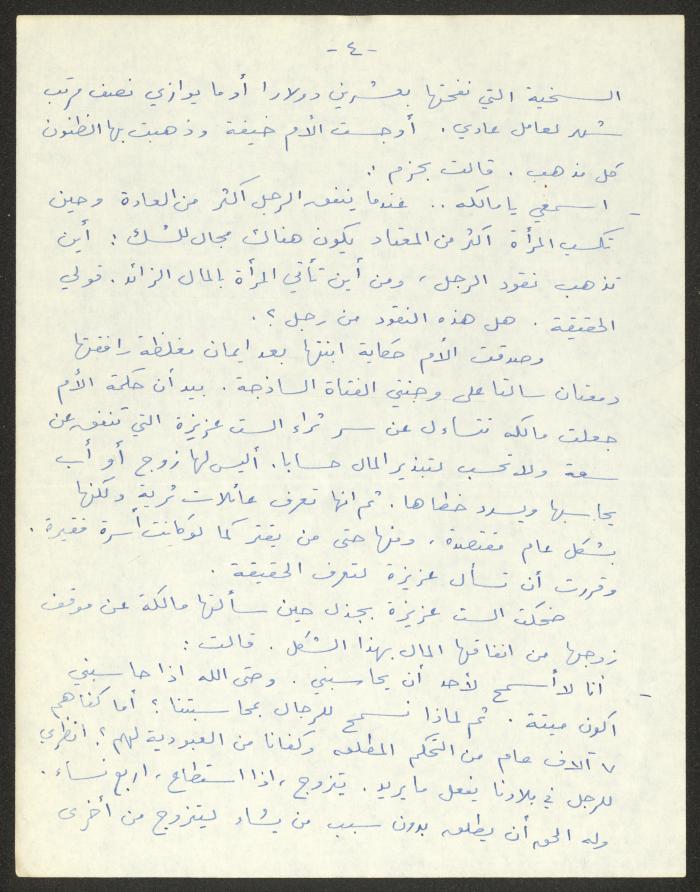 - ٤ -
السخية التي نفحتها بعشرين دولارا أو ما يوازي نصف مرتب
شهر لعامل عادي. أوجست الأم خيفة وذهبت بها الظنون
كل مذهب. قالت بحزم:
- اسمعي يا مالكه .. عندما ينفق الرجل أكثر من العادة وحين
تكسب المرأة اكثر من المعتاد يكون هناك مجال للشك: أين
تذهب نقود الرجل، ومن أين تأتي المرأة بالمال الزائد. قولي
الحقيقة. هل هذه النقود من رجل؟.
وصدقت الأم حكاية ابنتها بعد ايمان مغلظة رافقتها
دمعتان سالتا على وجنتي الفتاة الساذجة. بيد أن حكمة الأم
جعلت مالكه تتساءل عن سر ثراء الست عزيزة التي تنفق عن
سعة ولا تحسب لتبذير المال حسابا. أليس لها زوج أو أب
يحاسبها ويسدد خطاها. ثم انها تعرف عائلات ثرية ولكنها
بشكل عام مقتصدة، ومنها حتى من يقتر كما لو كانت أسرة فقيرة.
وقررت أن تسأل عزيزة لتعرف الحقيقة.
ضحكت الست عزيزة بجذل حين سألتها مالكة عن موقف
زوجها من انفاقها المال بهذا الشكل. قالت:
- أنا لا أسمح لأحد أن يحاسبني. وحتى الله اذا حاسبني
اكون ميتة. ثم لماذا نسمح للرجال بمحاسبتنا؟ أما كفاهم
٧ آلاف عام من التحكم المطلق وكفانا من العبودية لهم؟ انظري
للرجل في بلادنا يفعل ما يريد. يتزوج، اذا استطاع، اربع نساء.
وله الحق أن يطلق بدون سبب من يشاء ليتزوج من أخرى